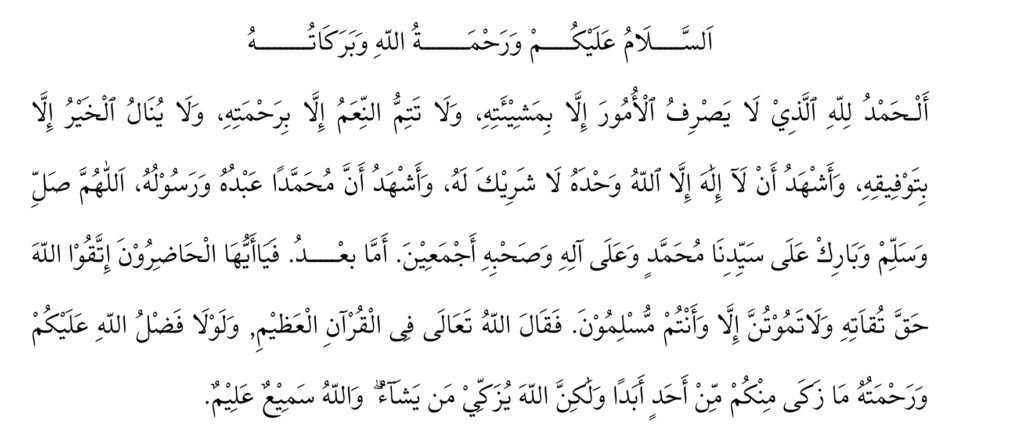 اَلسَّـــلَامُ عَلَيْكُـــمْ وَرَحْمَـــــةُ اللّهِ وَبَرَكَاتُـــــــهُ
أَلْـحَمْدُ لِلّهِ ٱلَّذِيْ لَا يَصْرِفُ ٱلْأُمُورَ إِلَّا بِمَشِيْئَتِهِ، وَلَا تَتِمُّ النِّعَمُ إِلَّا بِرَحْمَتِهِ، وَلَا يُنَالُ ٱلْخَيْرُ إِلَّا
بِتَوْفِيقِهِ، وَأَشْهَدُ أَنْ لَآ إِلٰهَ إِلَّا ٱللّهُ وَحْدَهُ لَا شَرِيْكَ لَهُ، وَأَشْهَدُ أَنَّ مُحَمَّدًا عَبْدُهُ وَرَسُوْلُهُ، اَللّٰهُمَّ صَلِّ
وَسَلِّمْ وَبَارِكْ عَلَى سَيِّدِنَا مُحَمَّدٍ وَعَلَى آلِهِ وَصَحْبِهِ أَجْمَعِيْنَ. أَمَّا بعْـــدُ. فَيَاأَيُّهَا الْحَاضِرُوْنَ إِتَّقُوْا اللّهَ
حَقَّ تُقاَتِهِ وَلاَتَمُوْتُنَّ إِلَّا وَأَنْتُمْ مُّسْلِمُوْنَ. فَقَالَ اللّهُ تَعَالَى فِى الْقُرْآنِ الْعَظِيْمِ, وَلَوْلَا فَضْلُ اللّهِ عَلَيْكُمْ
وَرَحْمَتُهُ مَا زَكَى مِنْكُمْ مِّنْ أَحَدٍ أَبَدًا وَلٰكِنَّ اللّهَ يُزَكِّيْ مَن يَشَآءُ ۗ وَاللّهُ سَمِيْعٌ عَلِيْمٌ.